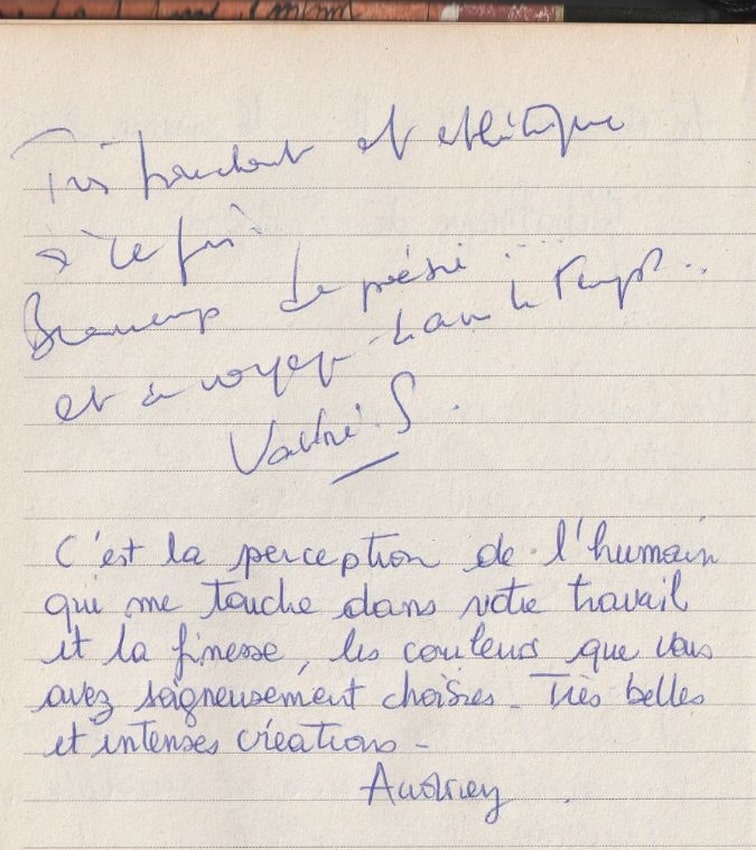 Très touchant et esthétique
à la fois
Beaucoup de poésie ....
et de voyage dans le temps..
Valérie S.
C'est la perception de l'humain
qui me touche dans votre travail
et la finesse, les couleurs que vous
avez soigneusement choisies. Très belles
et intenses créations -
Audrey.